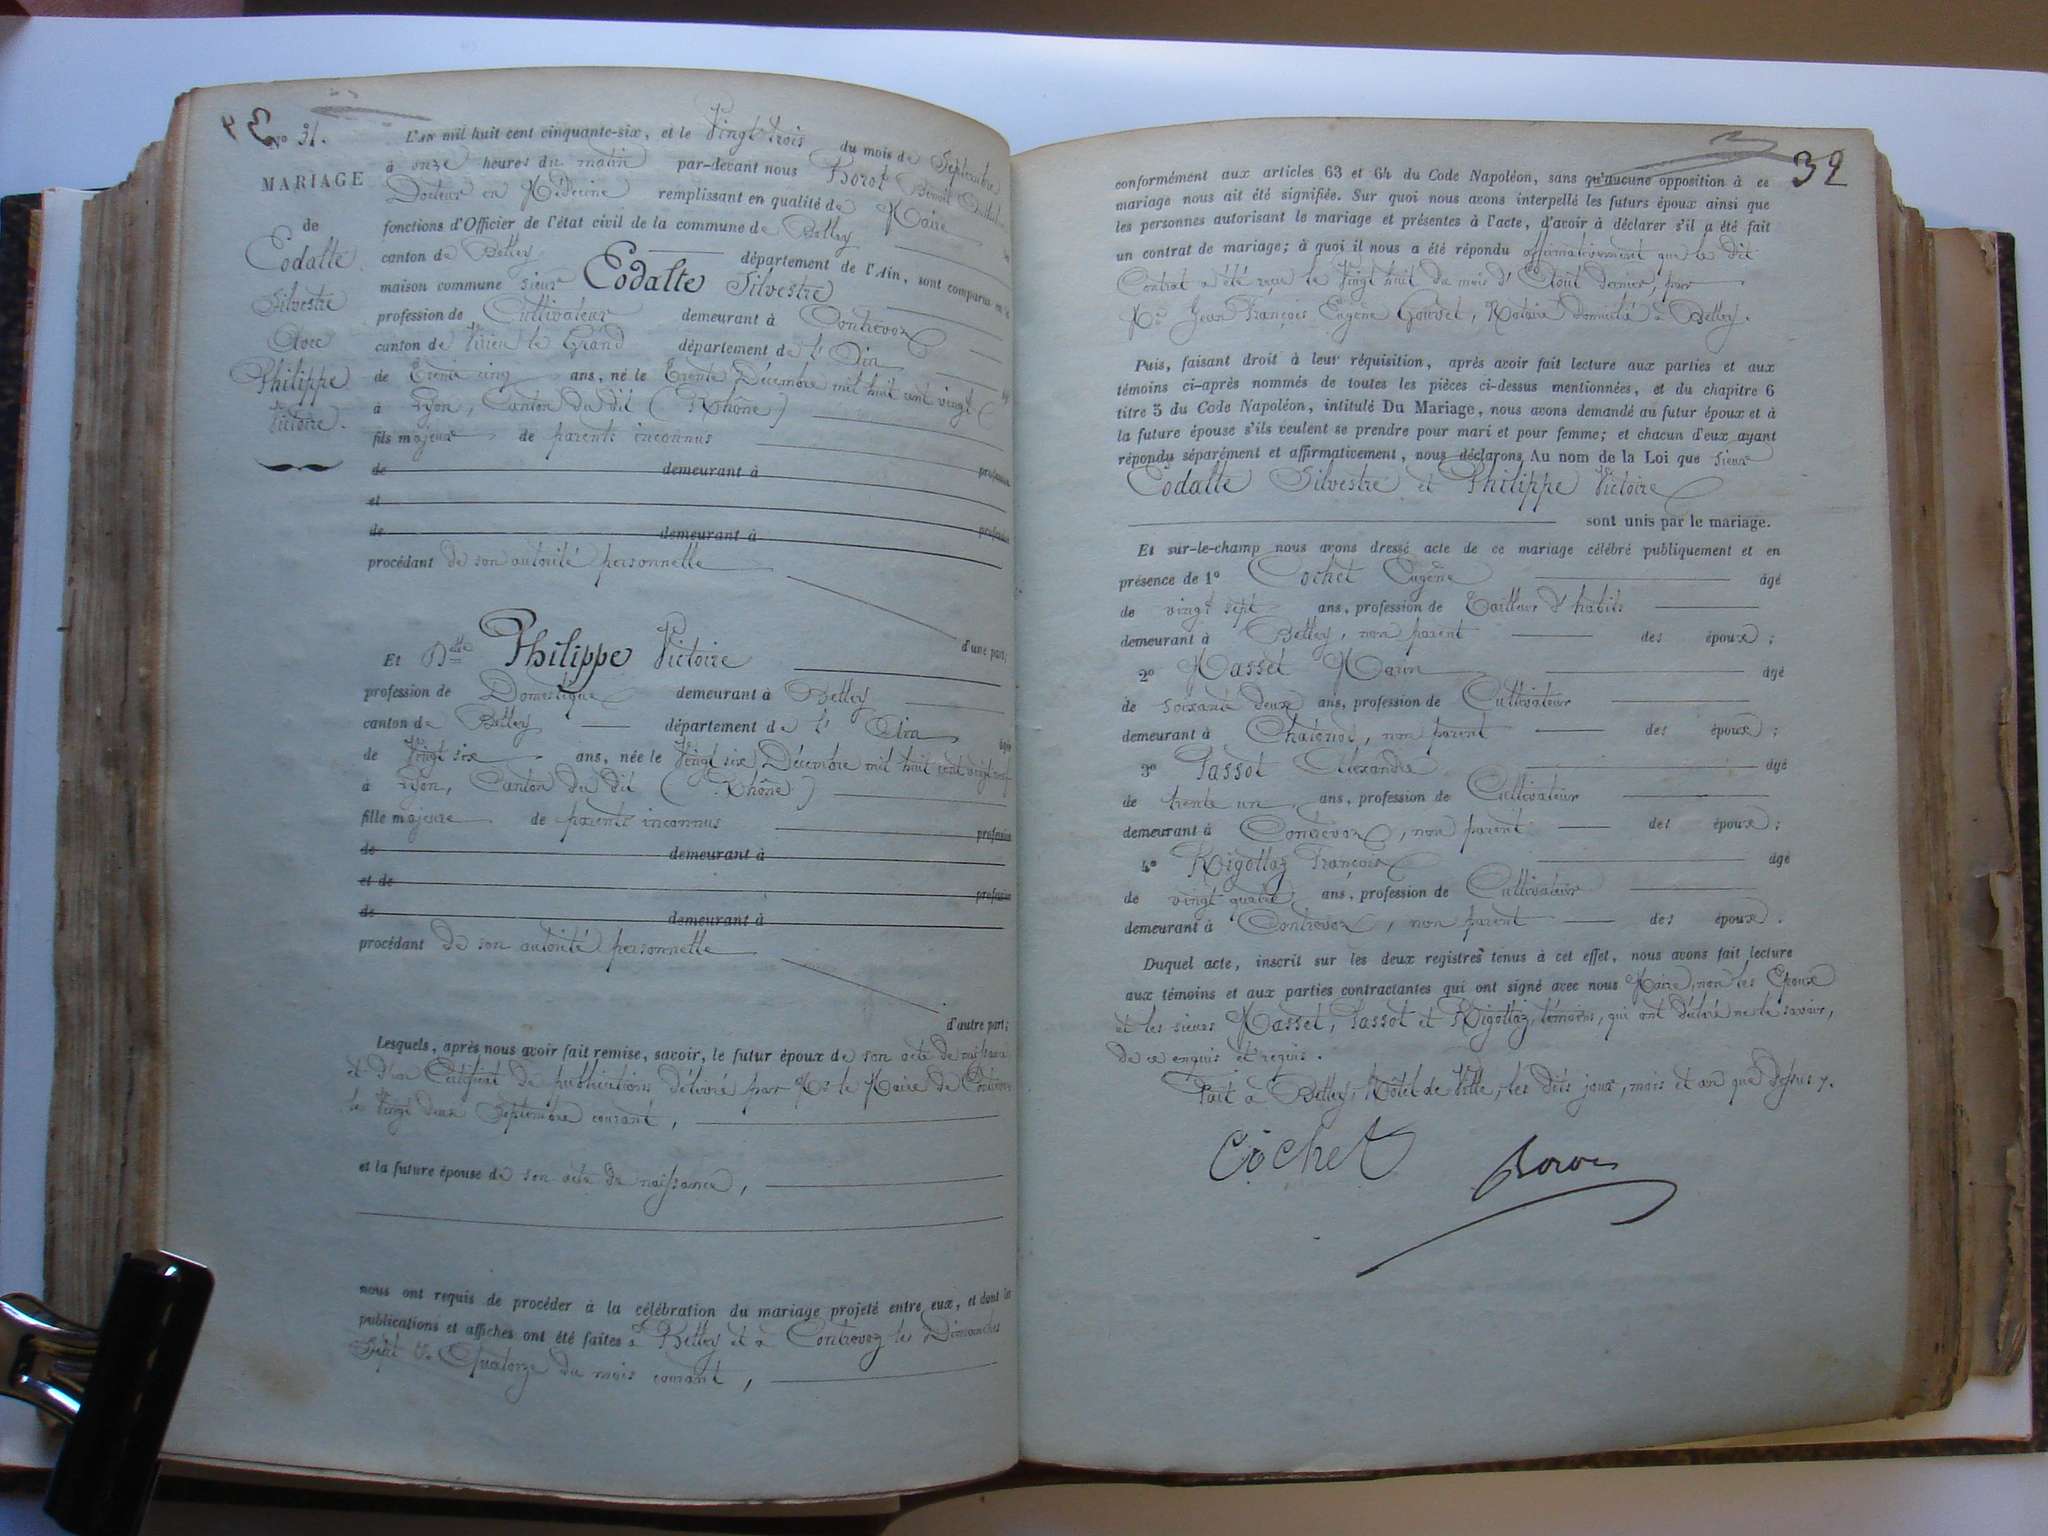 No 31.
MARIAGE
de
Codalte
Silvestre
Avec
Philippe
Victoire.
L'AN mil huit cent cinquante-six, et le Vingt trois du mois de Septembre
à onze heures du matin par-devant nous Benoit
Docteur en Médecine remplissant en qualité de Maire
fonctions d'Officier de l'état civil de la commune de Belley
canton de Belley département de l'Ain, sont comparus en la
maison commune sieur Codalte Silvestre
profession de Cultivateur demeurant à Contrevoz
canton de Virieu le Grand département de l'Ain
de Trente cinq ans, né le Trente Décembre mil huit cent vingt
à Lyon, Canton du dit (Rhône)
fils majeur de parents inconnus
de demeurant à profession
et
de demeurant à profession
procédant de son autorité personnelle
d'une part;
Et Delle Philippe Victoire
profession de Domestique demeurant à Belley
canton de Belley département de l'Ain âgée
de Vingt six ans, née le Vingt six Décembre mil huit cent vingt neuf
à Lyon, Canton du dit (Rhône)
fille majeure de parents inconnus profession
de demeurant à
et de profession
de demeurant à
procédant de son autorité personnelle
d'autre part;
Lesquels, après nous avoir fait remise, savoir, le futur époux de son acte de naissance
et d'un Certificat de publications délivré par Mr le Maire de Contrevoz
le Vingt deux Septembre courant,
et la future épouse de son acte de naissance,
nous ont requis de procéder à la célébration du mariage projeté entre eux, et dont les
publications et affiches ont été faites à Belley et à Contrevoz les Dimanches
Sept et Quatorze du mois courant,
32
conformément aux articles 63 et 64 du Code Napoléon, sans qu'aucune opposition à ce
mariage nous ait été signifiée. Sur quoi nous avons interpellé les futurs époux ainsi que
les personnes autorisant le mariage et présentes à l'acte, d'avoir à déclarer s'il a été fait
un contrat de mariage; à quoi il nous a été répondu affirmativement que le dit
Contrat a été reçu le Vingt huit du mois d'Août dernier, par
Me Jean François Eugène Gourdel, Notaire domicilié à Belley.
Puis, faisant droit à leur réquisition, après avoir fait lecture aux parties et aux
témoins ci-après nommés de toutes les pièces ci-dessus mentionnées, et du chapitre 6
titre 5 du Code Napoléon, intitulé Du Mariage, nous avons demandé au futur époux et à
la future épouse s'ils veulent se prendre pour mari et pour femme; et chacun d'eux ayant
répondu séparément et affirmativement, nous déclarons Au nom de la Loi que sieur
Codalte Silvestre et Philippe Victoire
sont unis par le mariage.
Et sur-le-champ nous avons dressé acte de ce mariage célébré publiquement et en
présence de 1º Cochet Eugène âgé
de vingt sept ans, profession de Tailleur d'habits
demeurant à Belley, non parent des époux;
2º Masset Marin âgé
de soixante deux ans, profession de Cultivateur
demeurant à Chatenod, non parent des époux;
3º Passot Alexandre âgé
de trente un ans, profession de Cultivateur
demeurant à Contrevoz, non parent des époux;
4º Rigollaz François âgé
de vingt quatre ans, profession de Cultivateur
demeurant à Contrevoz, non parent des époux.
Duquel acte, inscrit sur les deux registres tenus à cet effet, nous avons fait lecture
aux témoins et aux parties contractantes qui ont signé avec nous Maire, non les Epoux
et les sieurs Masset, Passot et Rigollaz, témoins, qui ont déclaré ne le savoir,
de ce enquis et requis.
Fait à Belley, Hôtel de Ville, les dits jour, mois et an que dessus.
Cochet